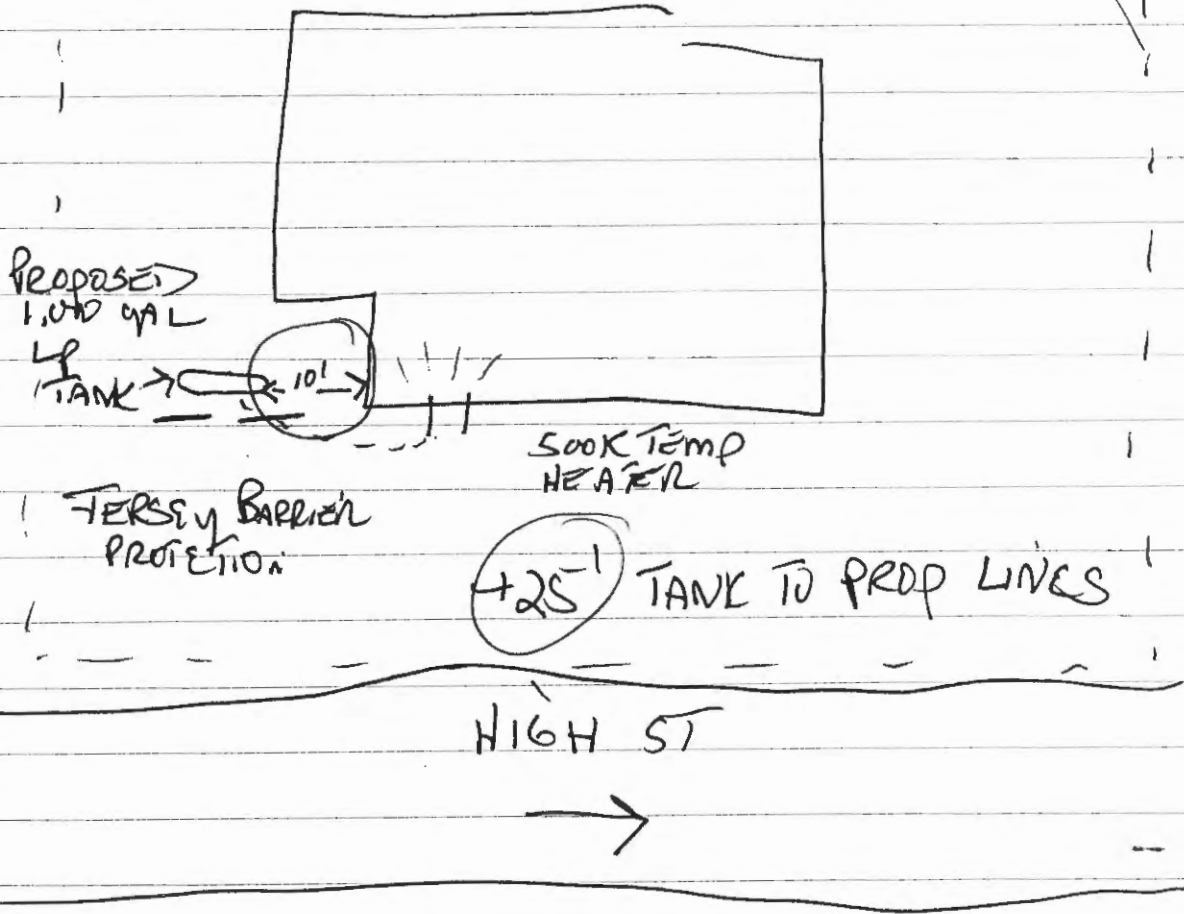 PROPOSED
1,000 gAL
LP
TANK
10'
500K TEMP
HEATER
JERSEy BARRIER
PROTETION
+25' TANK TO PROP LINES
HIGH ST